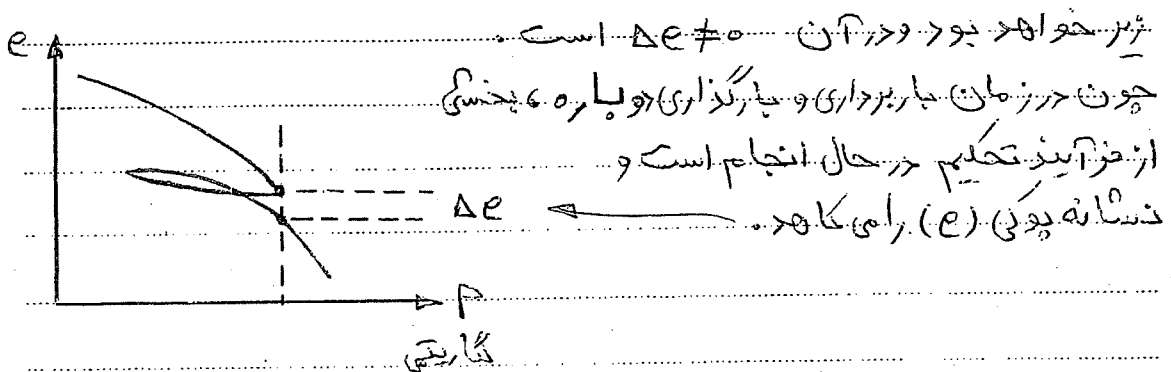 زیر خواهد بود و در آن Δe≠0 است.
چون در زمان باربرداری و بارگذاری دوباره، بخشی
از فرآیند تحکیم در حال انجام است و
نشانه پوکی (e) را می کاهد.
e
Δe
P
لگاریتمی